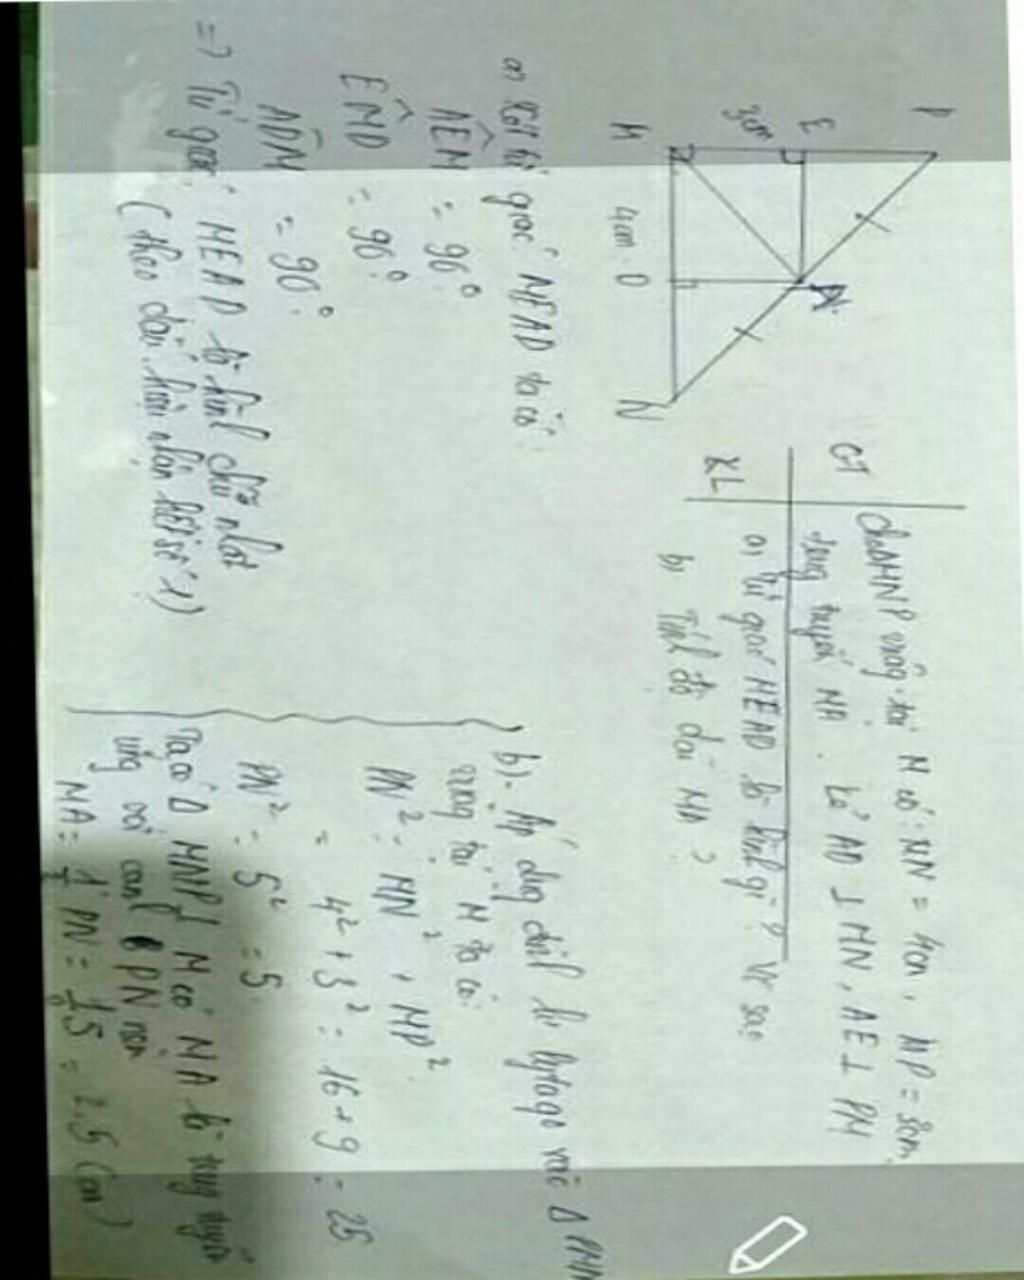 P
E
3cm
A
M
4cm
D
N
GT
Cho ΔMNP vuông tại M có: MN = 4cm, MP = 3cm,
trung tuyến MA. Kẻ AD ⊥ MN, AE ⊥ PM
KL
a) Tứ giác MEAD là hình gì? Vì sao
b) Tính độ dài MA?
a) Xét tứ giác MEAD ta có:
AEM = 90°
EMD = 90°
ADM = 90°
=> Tứ giác MEAD là hình chữ nhật
(theo dấu hiệu nhận biết số 1)
b). Áp dụng định lí Pytago vào Δ PMN
vuông tại M ta có:
PN² = MN² + MP²
= 4² + 3² = 16 + 9 = 25
PN² = 5² = 5
Ta có Δ MNP ⊥ M có MA là trung tuyến
ứng với cạnh PN nên
MA = 1/2 PN = 1/2.5 = 2,5 (cm)